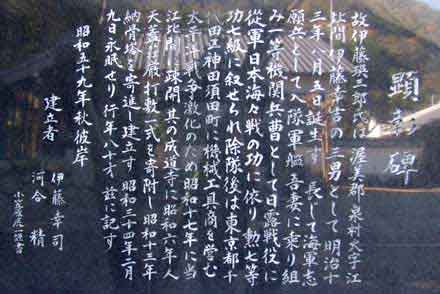 顕彰碑
故伊藤 三郎氏は渥美郡泉村大字江
比間伊藤幸吉の三男として明治十
三年八月五日誕生す 長して海軍志
願兵として入隊軍艦吾妻に乗り組
み一等機関兵曹として日露戦役に
従軍日本海々戦の功に依り勲七等
功七級に叙せられ除隊後は東京都千
代田区神田須田町に機械工具商を営む
太平洋戦争激化のため昭和十七年に当
江比間に疎開其の成道寺に昭和六年人
天蓋荘厳打敷一式を寄附し昭和十三年
納骨塔を寄進し建立す 昭和三十四年二月
九日永眠せり行年八十才 茲に記す
昭和五十九年秋彼岸
建立者 伊藤幸司
河合 精